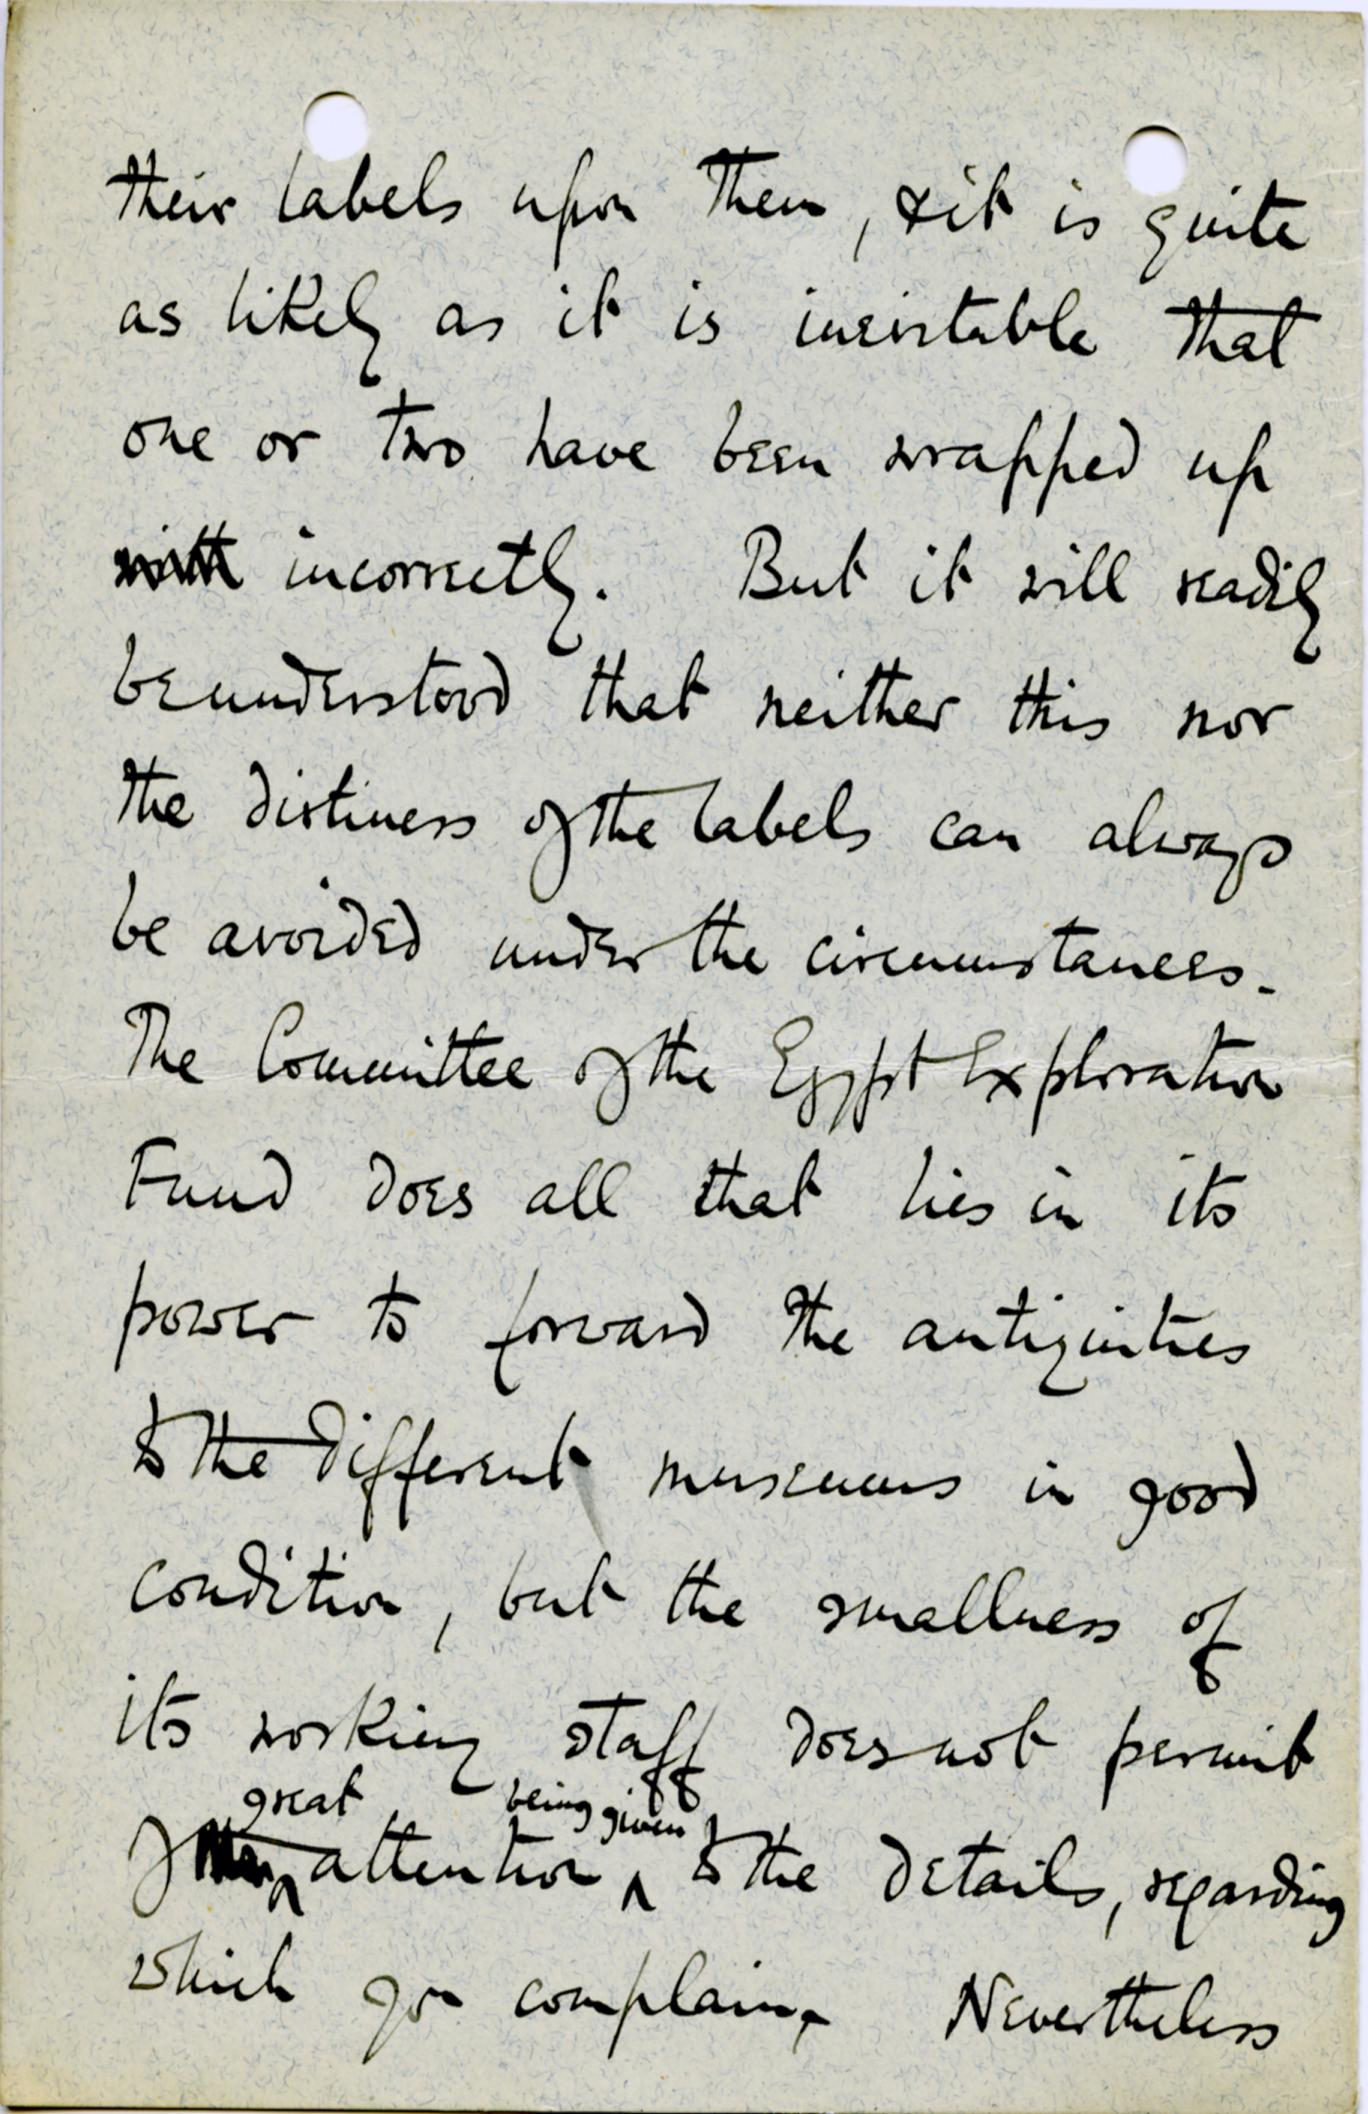 their labels upon them, & it is quite
as likely as it is inevitable that
one or two have been wrapped up
with incorrectly. But it will readily
be understood that neither this nor
the dirtiness of the labels can always
be avoided under the circumstances.
The Committee of the Egypt Exploration
Fund does all that lies in its
power to forward the antiquities
to the different museums in good
condition, but the smallness of
its working staff does not permit
great being given
of attention to the details, regarding
which you complain. Nevertheless